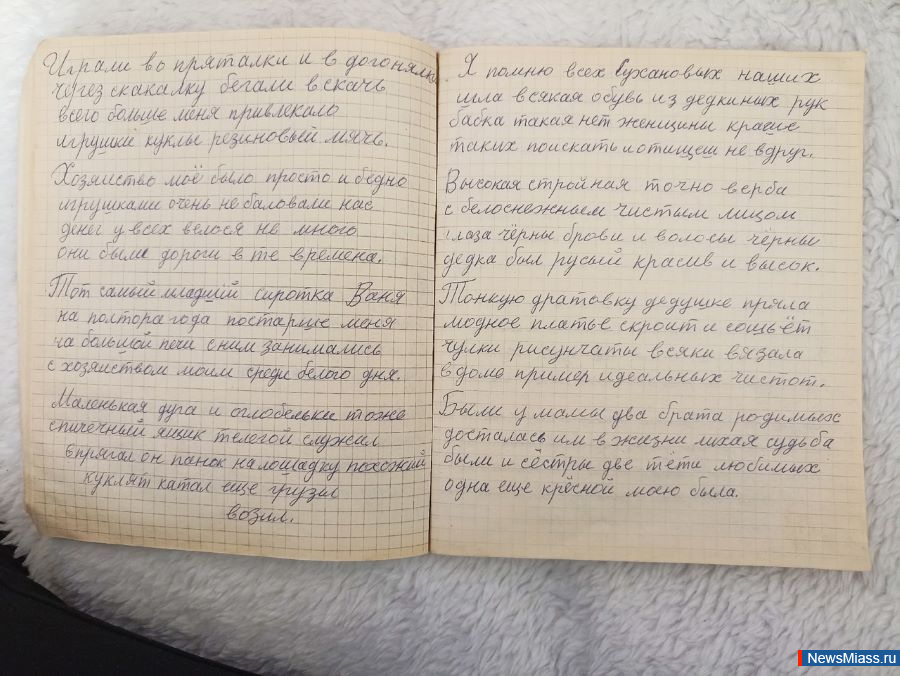 Играли во пряталки и в догонялки
через скакалку бегали вскачь
всего больше меня привлекало
игрушки куклы резиновый мячь.
Хозяйство моё было просто и бедно
игрушками очень не баловали нас
денег у всех велося не много
они были дороги в те времена.
Тот самый младший сиротка Ваня
на полтора года постарше меня
на большой печи с ним занимались
с хозяйством моим среди белого дня.
Маленькая дуга и оглобельки тоже
спичечный ящик телегой служил
впрягал он панок на лошадку похожий
куклят катал еще грузы
возил.
Я помню всех Сухановых наших
шла всякая обувь из дедкиных рук
бабка такая нет женщины краше
таких поискать и отищеш не вдруг.
Высокая стройная точно верба
с белоснежным чистым лицом
глаза чёрны брови и волосы чёрны
дедка был русый красив и высок.
Тонкую дратовку дедушке пряла
модное платье скроит и сошьёт
чулки рисунчаты всяки вязала
в доме пример идеальных чистот.
Были у мамы два брата родимых
досталась им в жизни лихая судьба
были и сёстры две тёти любимых
одна еще крёсной моею была.
NewsMiass.ru